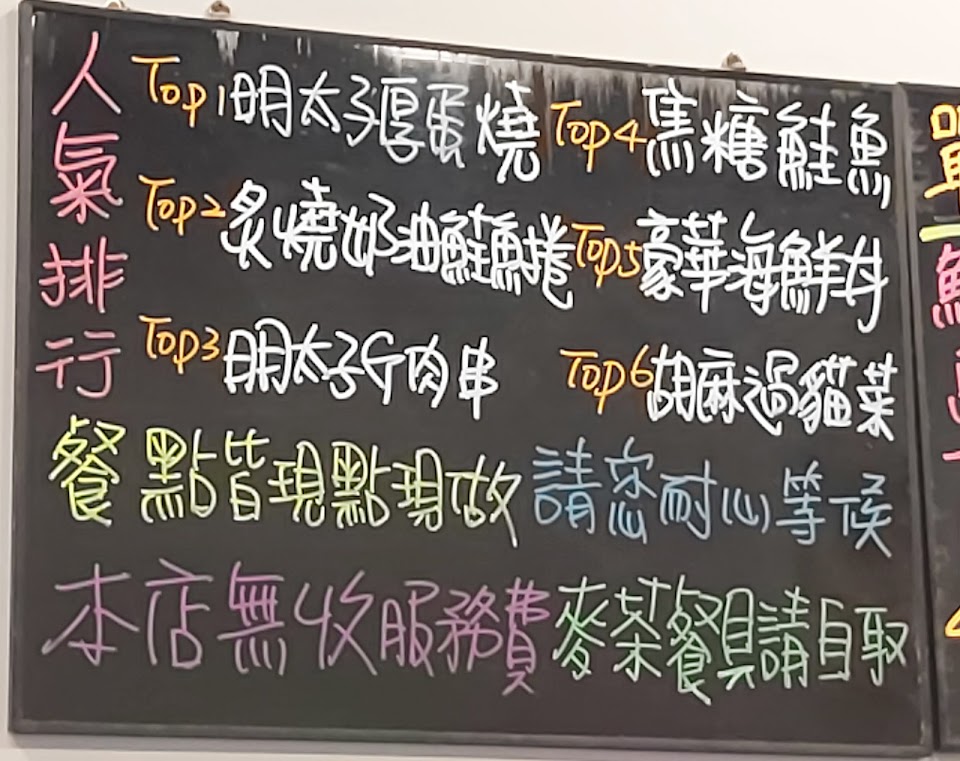 人氣排行
Top1明太子厚蛋燒
Top2炙燒奶油鮭魚捲
Top3明太子斤肉串
Top4焦糖鮭魚
Top5豪華海鮮丼
Top6胡麻過貓菜
餐點皆現點現做 請您耐心等候
本店無收服務費 麥茶餐具請自取
單